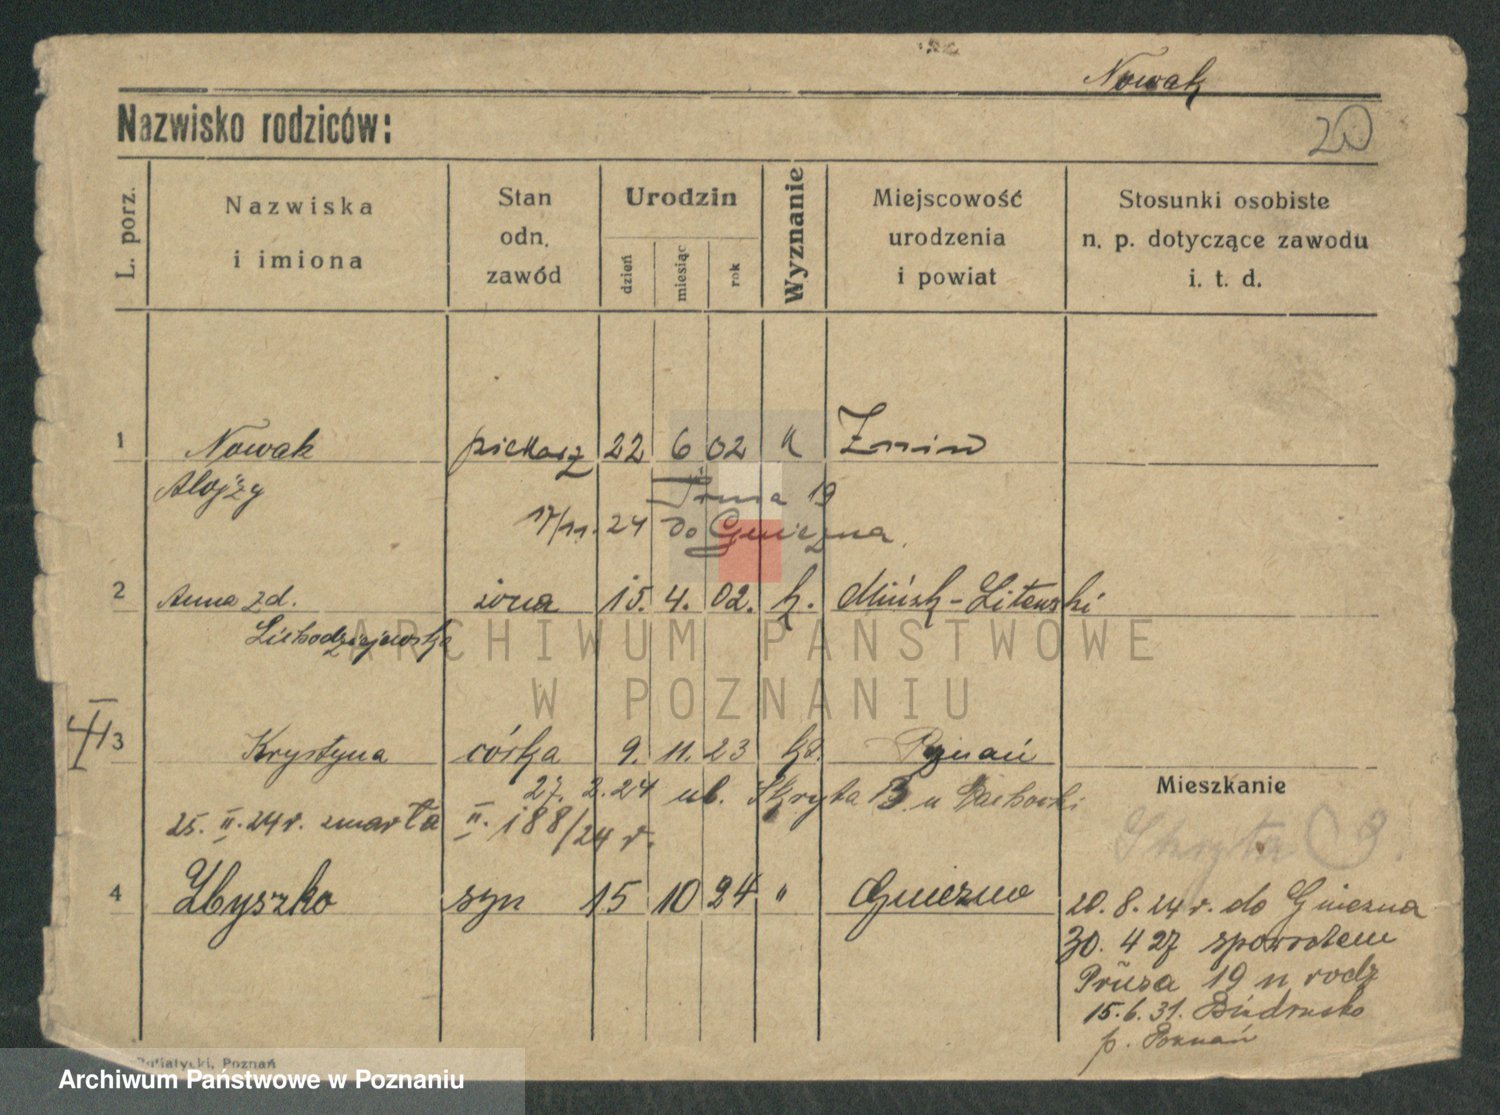 Nowak
Nazwisko rodziców:
20
L. porz.
Nazwiska
i imiona
Stan
odn.
zawód
Urodzin
dzień
miesiąc
rok
Wyznanie
Miejscowość
urodzenia
i powiat
Stosunki osobiste
n. p. dotyczące zawodu
i. t. d.
1 Nowak piekarz 22 6 02 k Żnin
Alojzy
Prusa 19
17/11. 24 do Gniezna
2 Anna zd. żona 15. 4. 02. k. Mińsk-Litewski
ARCHIWUM PAŃSTWOWE
W POZNANIU
3 Krystyna córka 9. 11. 23 kt. Poznań
27. 2. 24 ub. Skryta B u
25. II. 24 r. zmarła II. 188/24 r.
Mieszkanie
Skryta 9.
4 Zbyszko syn 15 10 24 " Gniezno
20. 8. 24 r. do Gniezna
30. 4 27 spowrotem
Prusa 19 u rodz
15. 6. 31. Biedrusko
p. Poznań
Putiatycki, Poznań
Archiwum Państwowe w Poznaniu